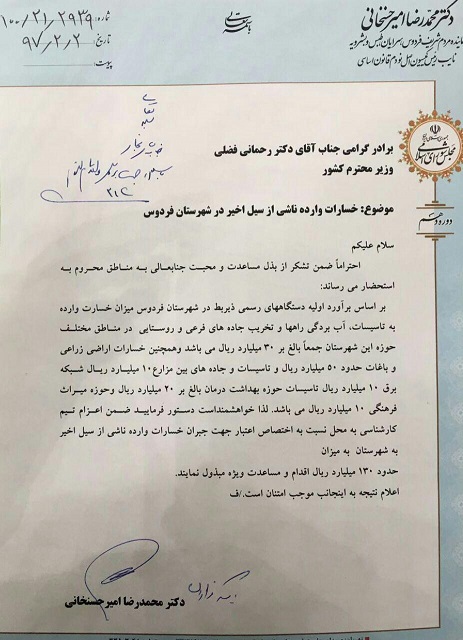 دکتر محمدرضا امیرحسنخانی
نماینده مردم شریف فردوس، سرایان، طبس و بشرویه
نایب رئیس کمیسیون اصل نودم قانون اساسی
بسمه تعالی
شماره: ۱۰۰/۲۱/۲۹۳۹
تاریخ: ۹۷/۲/۲
پیوست:
مجلس شورای اسلامی
دوره دهم
برادر گرامی جناب آقای دکتر رحمانی فضلی
وزیر محترم کشور
موضوع: خسارات وارده ناشی از سیل اخیر در شهرستان فردوس
سلام علیکم
احتراماً ضمن تشکر از بذل مساعدت و محبت جنابعالی به مناطق محروم به
استحضار می رساند:
بر اساس برآورد اولیه دستگاههای رسمی ذیربط در شهرستان فردوس میزان خسارت وارده
به تاسیسات، آب بردگی راهها و تخریب جاده های فرعی و روستایی در مناطق مختلف
حوزه این شهرستان جمعاً بالغ بر ۳۰ میلیارد ریال می باشد وهمچنین خسارات اراضی زراعی
و باغات حدود ۵۰ میلیارد ریال و تاسیسات و جاده های بین مزارع ۱۰ میلیارد ریال شبکه
برق ۱۰ میلیارد ریال تاسیسات حوزه بهداشت درمان بالغ بر ۲۰ میلیارد ریال وحوزه میراث
فرهنگی ۱۰ میلیارد ریال می باشد. لذا خواهشمنداست دستور فرمایید ضمن اعزام تیم
کارشناسی به محل نسبت به اختصاص اعتبار جهت جبران خسارات وارده ناشی از سیل اخیر
به شهرستان به میزان
حدود ۱۳۰ میلیارد ریال اقدام و مساعدت ویژه مبذول نمایند.
اعلام نتیجه به اینجانب موجب امتنان است./ف
دکتر محمدرضا امیرحسنخانی